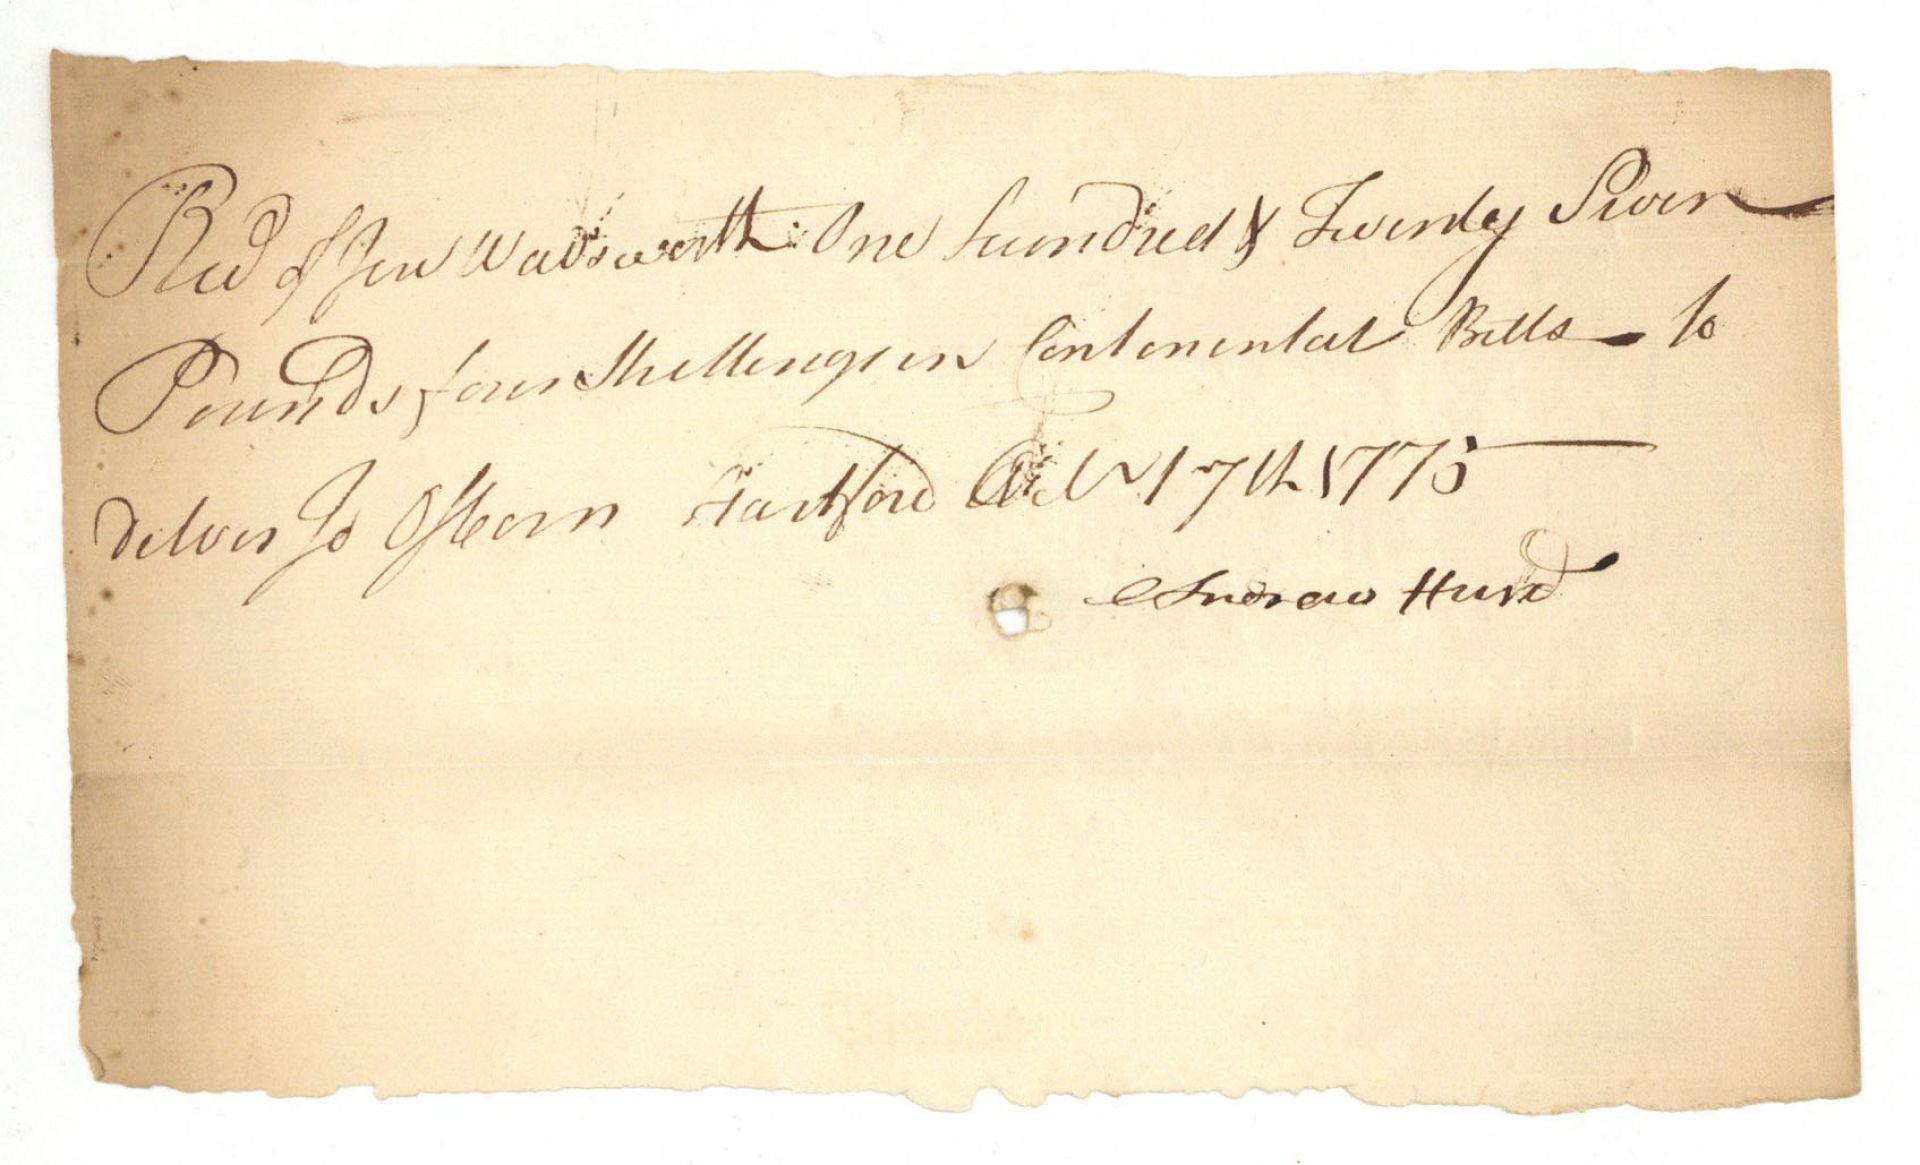 Recd of Jerr Wadsworth One hundred & Twenty Seven
Pounds four Shillings in Continental Bills - to
deliver to Osborn Hartford Octr 17th 1775
Andrew Hurd